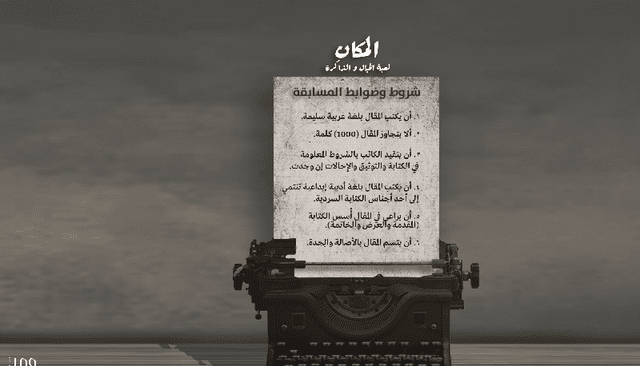 المكان
لعبة الخيال و الذاكرة
شروط وضوابط المسابقة
١. أن يكتب المقال بلغة عربية سليمة.
٢. ألا يتجاوز المقال (1000) كلمة.
٣. أن يتقيد الكاتب بالشروط المعلومة
في الكتابة والتوثيق والإحالات إن وجدت.
٤. أن يكتب المقال بلغة أدبية إبداعية تنتمي
إلى أحد أجناس الكتابة السردية.
٥. أن يراعى في المقال أسس الكتابة
(المقدمة والعرض والخاتمة).
٦. أن يتسم المقال بالأصالة والجدة.